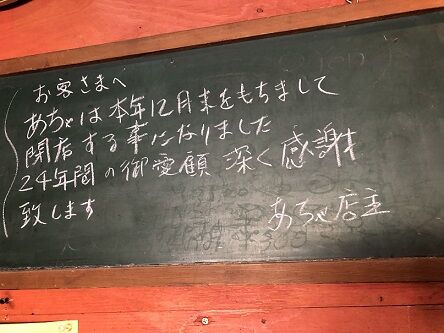 お客さまへ
あちゃは本年12月末をもちまして
閉店する事になりました
24年間の御愛顧深く感謝
致します
あちゃ店主